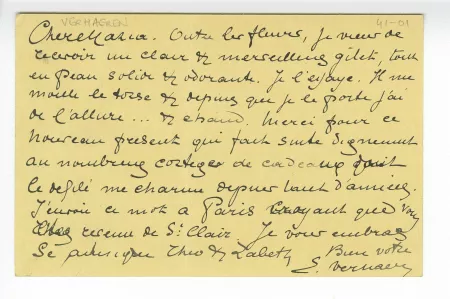 VERHAEREN 41-01
Chere Maria. Outre les fleurs, je viens de
recevoir un clair & merveilleux gilet, tout
en peau solide & odorante. Je l'essaye. Il me
moule le torse & depuis que je le porte j'ai
de l'allure... & chaud. Merci pour ce
nouveau present qui fait suite dignement
au nombreux cortege de cadeaux dont
le defilé me charme depuis tant d'années.
J'envoie ce mot a Paris croyant que vous
êtes revenue de St Clair. Je vous embrasse
ainsi que Theo & Zabeth Bien votre
E. Verhaeren